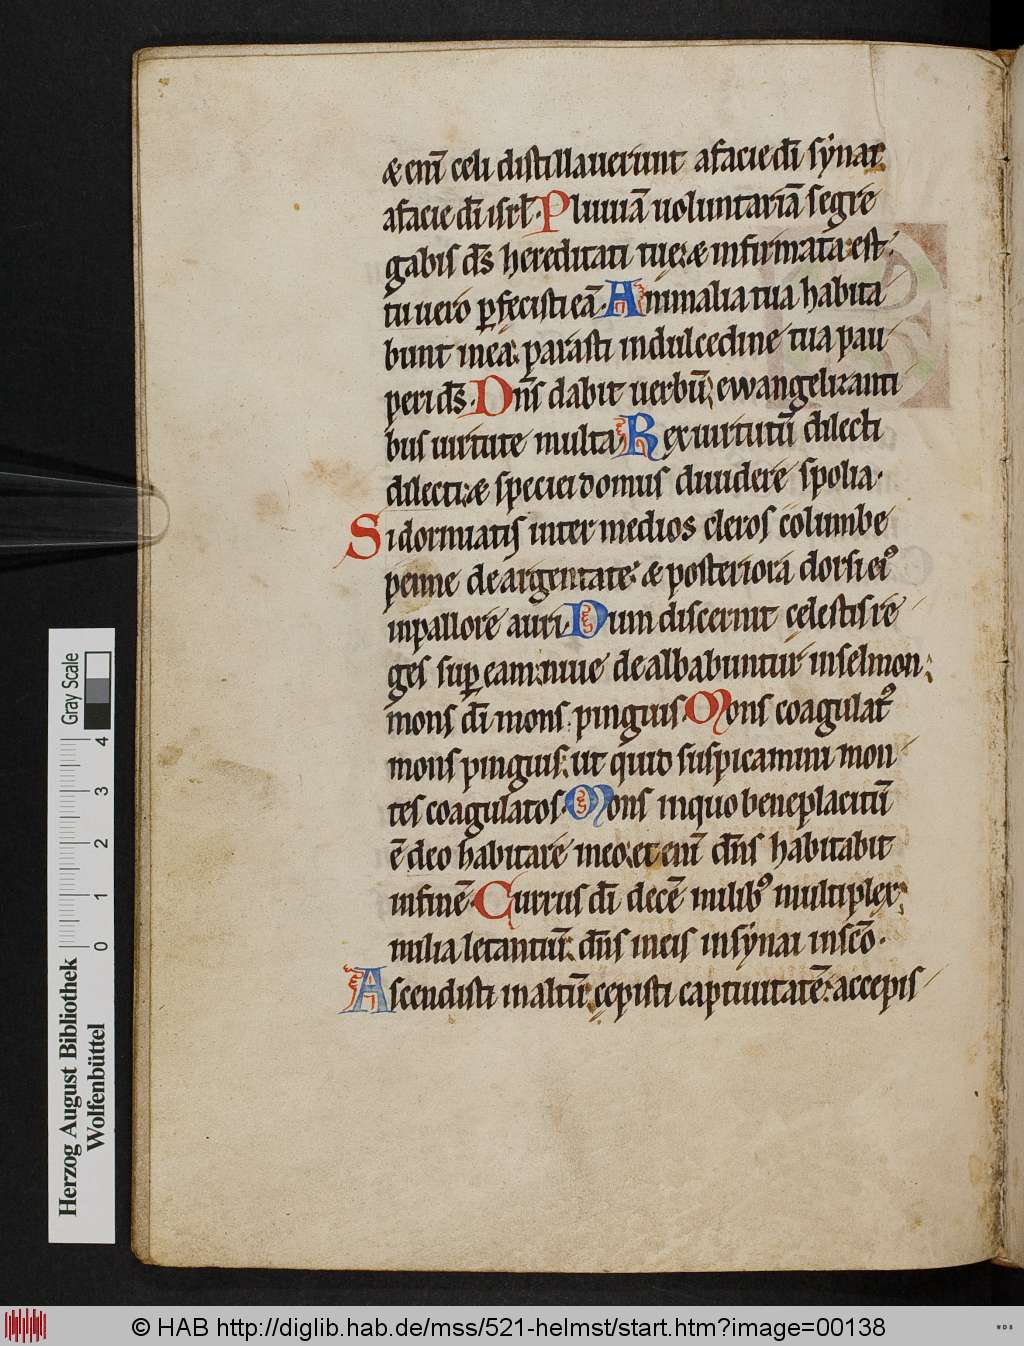 æ eni͂ celi distillauerunt a facie di͂ synai
a facie di͂ isrl̄. Pluuiā uoluntariā segre
gabis ds̄ hereditati tue; æ infirmata est.
tu uero ꝑfecisti eā. Animalia tua habita
bunt in ea; parasti in dulcedine tua pau
peri ds̄. Dn̄s dabit uerbū; ewangelizanti
bus uirtute multa. Rex uirtutū dilecti
dilecti; æ speciei domus diuidere spolia.
Si dormiatis inter medios cleros columbe
penne deargentate; æ posteriora dorsi eiꝰ
in pallore auri. Dum discernit celestis re
ges suꝑ eam; niue dealbabuntur in selmon;
mons di͂ mons pinguis. Mons coagulatꝰ
mons pinguis; ut quid suspicamini mon
tes coagulatos. Mons in quo beneplacitū
ē deo habitare in eo; et eni͂ dn̄s habitabit
in finē. Currus di͂ decē milibꝰ multiplex;
milia letantiū; dn̄s in eis in synai in scō.
Ascendisti in altū; cepisti captiuitatē; accepis
Gray Scale
4
3
2
1
0
Herzog August Bibliothek
Wolfenbüttel
© HAB http://diglib.hab.de/mss/521-helmst/start.htm?image=00138
WDB